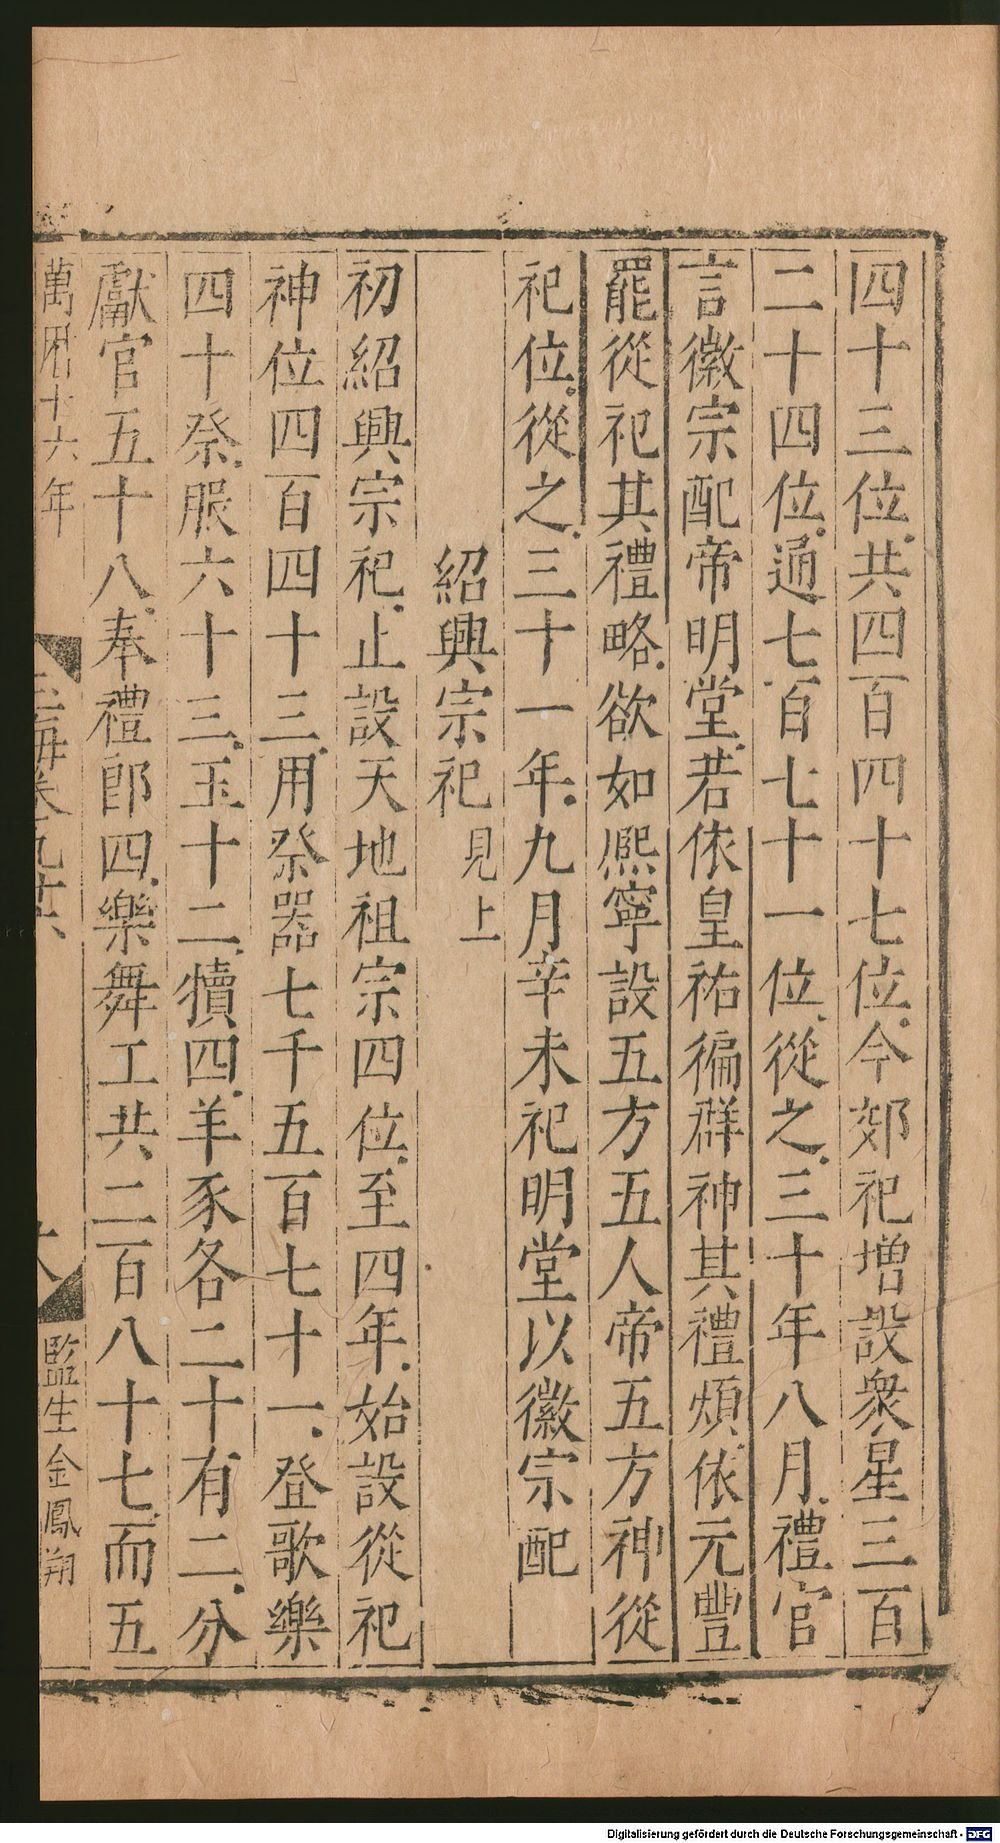 四十三位共四百四十七位今郊祀增設衆星三百
二十四位通七百七十一位從之三十年八月禮官
言徽宗配帝明堂若依皇祐徧群神其禮煩依元豐
罷從祀其禮略欲如熈寧設五方五人帝五方神從
祀位從之三十一年九月辛未祀明堂以徽宗配
紹興宗祀見上
初紹興宗祀止設天地祖宗四位至四年始設從祀
神位四百四十三用祭器七千五百七十一登歌樂
四十祭服六十三玉十二犢四羊豕各二十有二分
獻官五十八奉禮郎四樂舞工共二百八十七而五
萬曆十六年
玉海卷九十六
監生金鳳翔
Digitalisierung gefördert durch die Deutsche Forschungsgemeinschaft - DFG